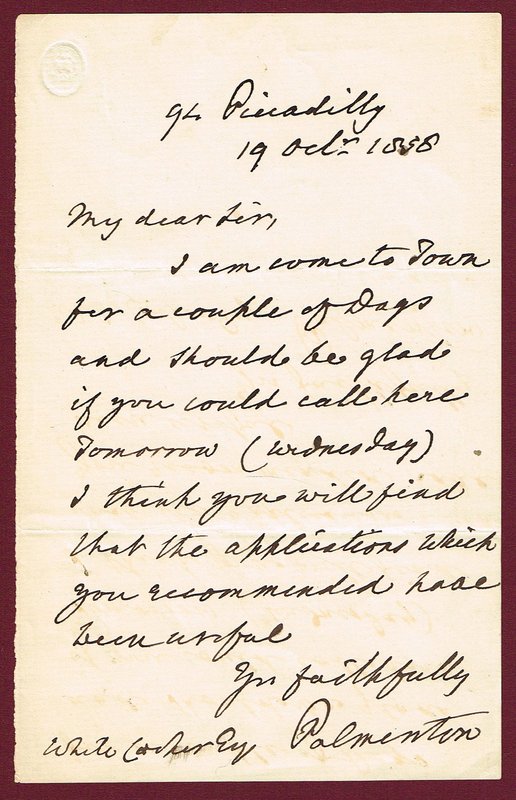 94 Piccadilly
19 Octr 1858
My dear Sir,
I am come to Town
for a couple of Days
and should be glad
if you could call here
Tomorrow (Wednesday)
I think you will find
that the applications which
you recommended have
been useful
Yrs faithfully
Palmerston
White Cooper Esq